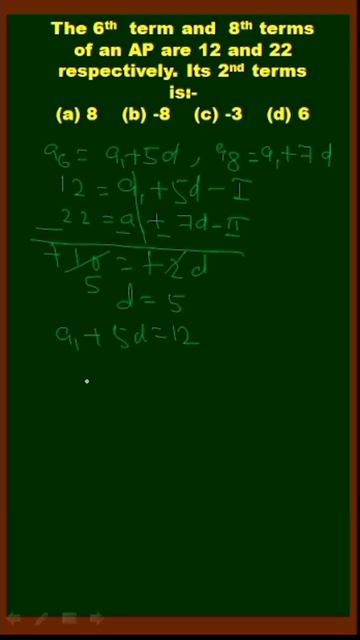 The 6th term and 8th terms
of an AP are 12 and 22
respectively. Its 2nd terms
is:-
(a) 8 (b) -8 (c) -3 (d) 6
a6 = a1+5d, a8=a1+7d
12 = a1+5d-I
22 = a ± 7d-II
+10 = +2d
5
d = 5
a1 + 5d=12